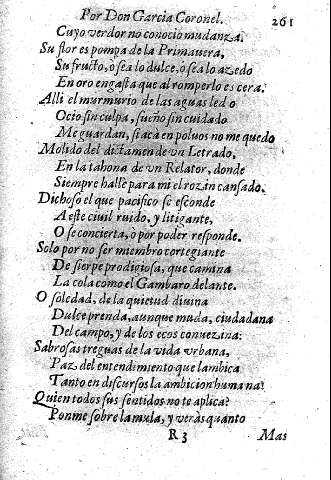 Por Don Garcia Coronel. 261
Cuyo verdor no conocio mudanza.
Su flor es pompa de la Primavera,
Su fructo, ò sea lo dulce, ò sea lo azedo
En oro engasta que al romperlo es cera.
Alli el murmurio de las aguas ledo
Ocio sin culpa, sueño sin cuidado
Me guardan, si acà en poluos no me quedo
Molido del dictamen de vn Letrado,
En la tahona de vn Relator, donde
Siempre hallè para mi el rozin cansado.
Dichoso el que pacifico se esconde
A este ciuil ruido, y litigante,
O se concierta, ò por poder responde.
Solo por no ser miembro cortegiante
De sierpe prodigiosa, que camina
La cola como el Gambaro delante.
O soledad, de la quietud diuina
Dulce prenda, aunque muda, ciudadana
Del campo, y de los ecos conuezina:
Sabrosas treguas de la vida vrbana,
Paz del entendimiento que lambica
Tanto en discursos la ambicion humana:
Quien todos sus sentidos no te aplica?
Ponme sobre la mula, y veràs quanto
R 3 Mas